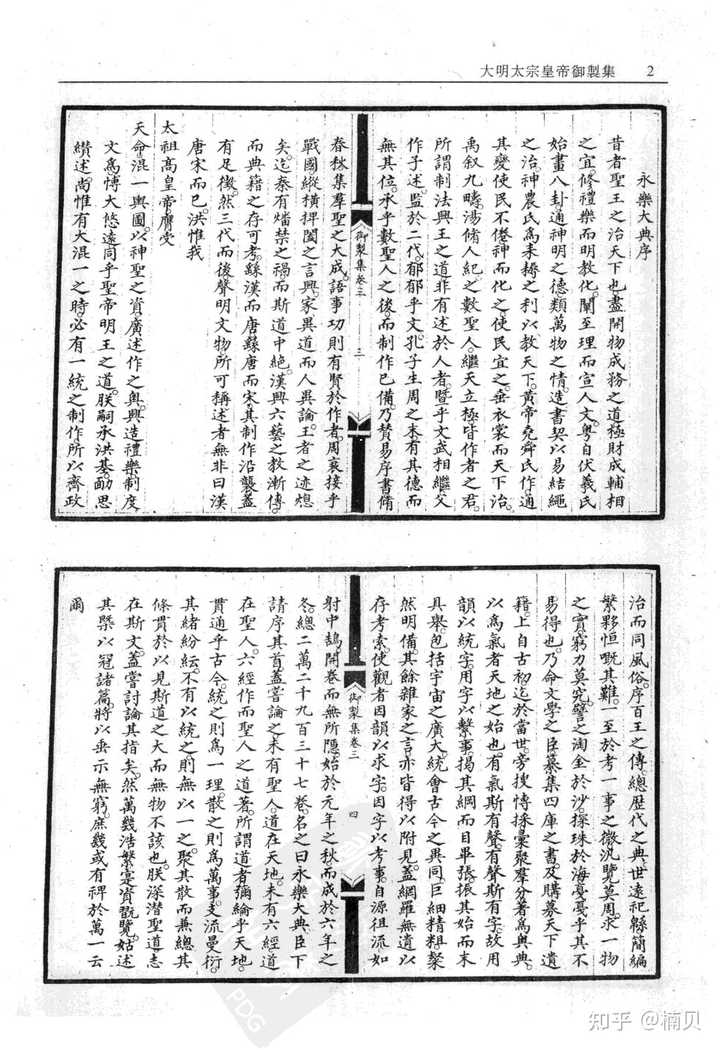 大明太宗皇帝御製集 2
永樂大典序
昔者聖王之治天下也盡開物成務之道極財成輔相
之宜修禮樂而明教化闡至理而宣人文粤自伏羲氏
始畫八卦通神明之德類萬物之情造書契以易結繩
之治神農氏為耒耨之利以教天下黄帝堯舜氏作通
其變使民不倦神而化之使民宜之垂衣裳而天下治
禹叙九疇湯脩人紀之數聖人繼天立極皆作者之君
所謂制法興王之道非有述於人者暨乎文武相繼父
作子述監於二代郁郁乎文孔子生周之末有其德而
無其位承乎數聖人之後而制作已備乃贊易序書脩
御製集卷三
三
春秋集羣聖之大成語事功則有賢於作者周衰接乎
戰國縱横捭闔之言興家異道而人異論王者之迹熄
矣迄秦有燔禁之禍而斯道中絶漢興六藝之教漸傳
而典籍之存可考繇漢而唐繇唐而宋其制作沿襲蓋
有足徵然三代而後聲明文物所可稱述者無非曰漢
唐宋而已洪惟我
太祖高皇帝膺受
天命混一輿圖以神聖之資廣述作之奥興造禮樂制度
文為博大悠遠同乎聖帝明王之道朕嗣承洪基勔思
纘述尚惟有大混一之時必有一統之制作所以齊政
治而同風俗序百王之傳總歷代之典世遠祀緜簡編
繁夥恒嘅其難一至於考一事之微汎覽莫周求一物
之實窮力莫究譬之淘金於沙探珠於海戞戞乎其不
易得也乃命文學之臣纂集四庫之書及購募天下遺
籍上自古初迄於當世旁搜博採彙聚羣分著為奥典
以為氣者天地之始也有氣斯有聲有聲斯有字故用
韻以統字用字以繫事揭其綱而目畢張振其始而末
具舉包括宇宙之廣大統會古今之異同巨細精粗粲
然明備其餘雜家之言亦皆得以附見蓋網羅無遺以
存考索使觀者因韻以求字因字以考事自源徂流如
御製集卷三
四
射中鵠開卷而無所隱始於元年之秋而成於六年之
冬總二萬二千九百三十七卷名之曰永樂大典臣下
請序其首蓋嘗論之未有聖人道在天地未有六經道
在聖人六經作而聖人之道著所謂道者彌綸乎天地
貫通乎古今統之則為一理散之則為萬事支流曼衍
其緒紛紜不有以統之則無以一之聚其散而兼總其
條貫於以見斯道之大而無物不該也朕深潜聖道志
在斯文蓋嘗討論其指矣然萬幾浩繁寔資翫覽姑述
其槩以冠諸篇將以垂示無窮庶幾或有裨於萬一云
爾
PDG
知乎 @楠贝